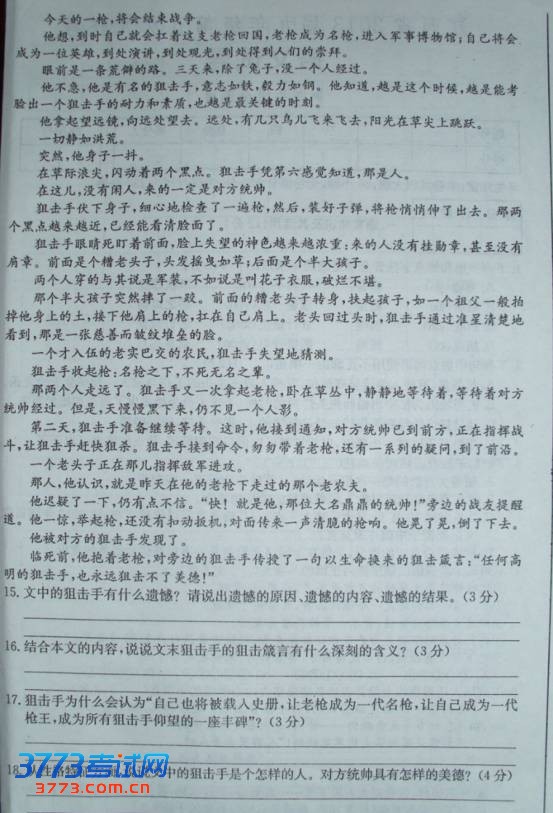 今天的一枪,将会结束战争。
他想,到时自己就会扛着这支老枪回国,老枪成为名枪,进入军事博物馆;自己将会
成为一位英雄,到处演讲,到处观光,到处得到人们的崇拜。
眼前是一条荒僻的路。三天来,除了兔子,没一个人经过。
他不急,他是有名的狙击手,意志如铁,毅力如钢。他知道,越是这个时候,越是能考
验出一个狙击手的耐力和素质,也越是最关键的时刻。
他拿起望远镜,向远处望去。远处,有几只鸟儿飞来飞去,阳光在草尖上跳跃。
一切静如洪荒。
突然,他身子一抖。
在草际浪尖,闪动着两个黑点。狙击手凭第六感觉知道,那是人。
在这儿,没有闲人,来的一定是对方统帅。
狙击手伏下身子,细心地检查了一遍枪,然后,装好子弹,将枪悄悄伸了出去。那两
个黑点越来越近,已经能看清脸面了。
狙击手眼睛死盯着前面,脸上失望的神色越来越浓重:来的人没有挂勋章,甚至没有
肩章。前面是个糟老头子,头发摇曳如草;后面是个半大孩子。
两个人穿的与其说是军装,不如说是叫花子衣服,破烂不堪。
那个半大孩子突然摔了一跤。前面的糟老头子转身,扶起孩子,如一个祖父一般拍
掉他身上的土,接下他肩上的枪,扛在自己肩上。老头回过头时,狙击手通过准星清楚地
看到,那是一张慈善而皱纹堆垒的脸。
一个才入伍的老实巴交的农民,狙击手失望地猜测。
狙击手收起枪:名枪之下,不死无名之辈。
那两个人走远了。狙击手又一次拿起老枪,卧在草丛中,静静地等待着,等待着对方
统帅经过。但是,天慢慢黑下来,仍不见一个人影。
第二天,狙击手准备继续等待。这时,他接到通知,对方统帅已到前方,正在指挥战
斗,让狙击手赶快狙杀。狙击手接到命令,匆匆带着老枪,还有一系列的疑问,到了前沿。
一个老头子正在那儿指挥敌军进攻。
那人,他认识,就是昨天在他的老枪下走过的那个老农夫。
他迟疑了一下,仍有点不信。“快!就是他,那位大名鼎鼎的统帅!”旁边的战友提醒
道。他一惊,举起枪,还没有扣动扳机,对面传来一声清脆的枪响。他晃了晃,倒了下去。
他被对方的狙击手发现了。
临死前,他抱着老枪,对旁边的狙击手传授了一句以生命换来的狙击箴言:“任何高
明的狙击手,也永远狙击不了美德!”
15.文中的狙击手有什么遗憾?请说出遗憾的原因、遗憾的内容、遗憾的结果。(3分)
16.结合本文的内容,说说文末狙击手的狙击箴言有什么深刻的含义?(3分)
17.狙击手为什么会认为“自己也将被载入史册,让老枪成为一代名枪,让自己成为一代
枪王,成为所有狙击手仰望的一座丰碑”?(3分)
18.中的狙击手是个怎样的人。对方统帅具有怎样的美德?(4分)
3773考试网
3773.com.cn